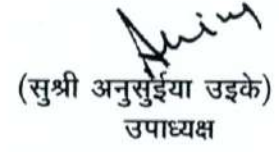 (सुश्री अनुसुईया उइके)
उपाध्यक्ष